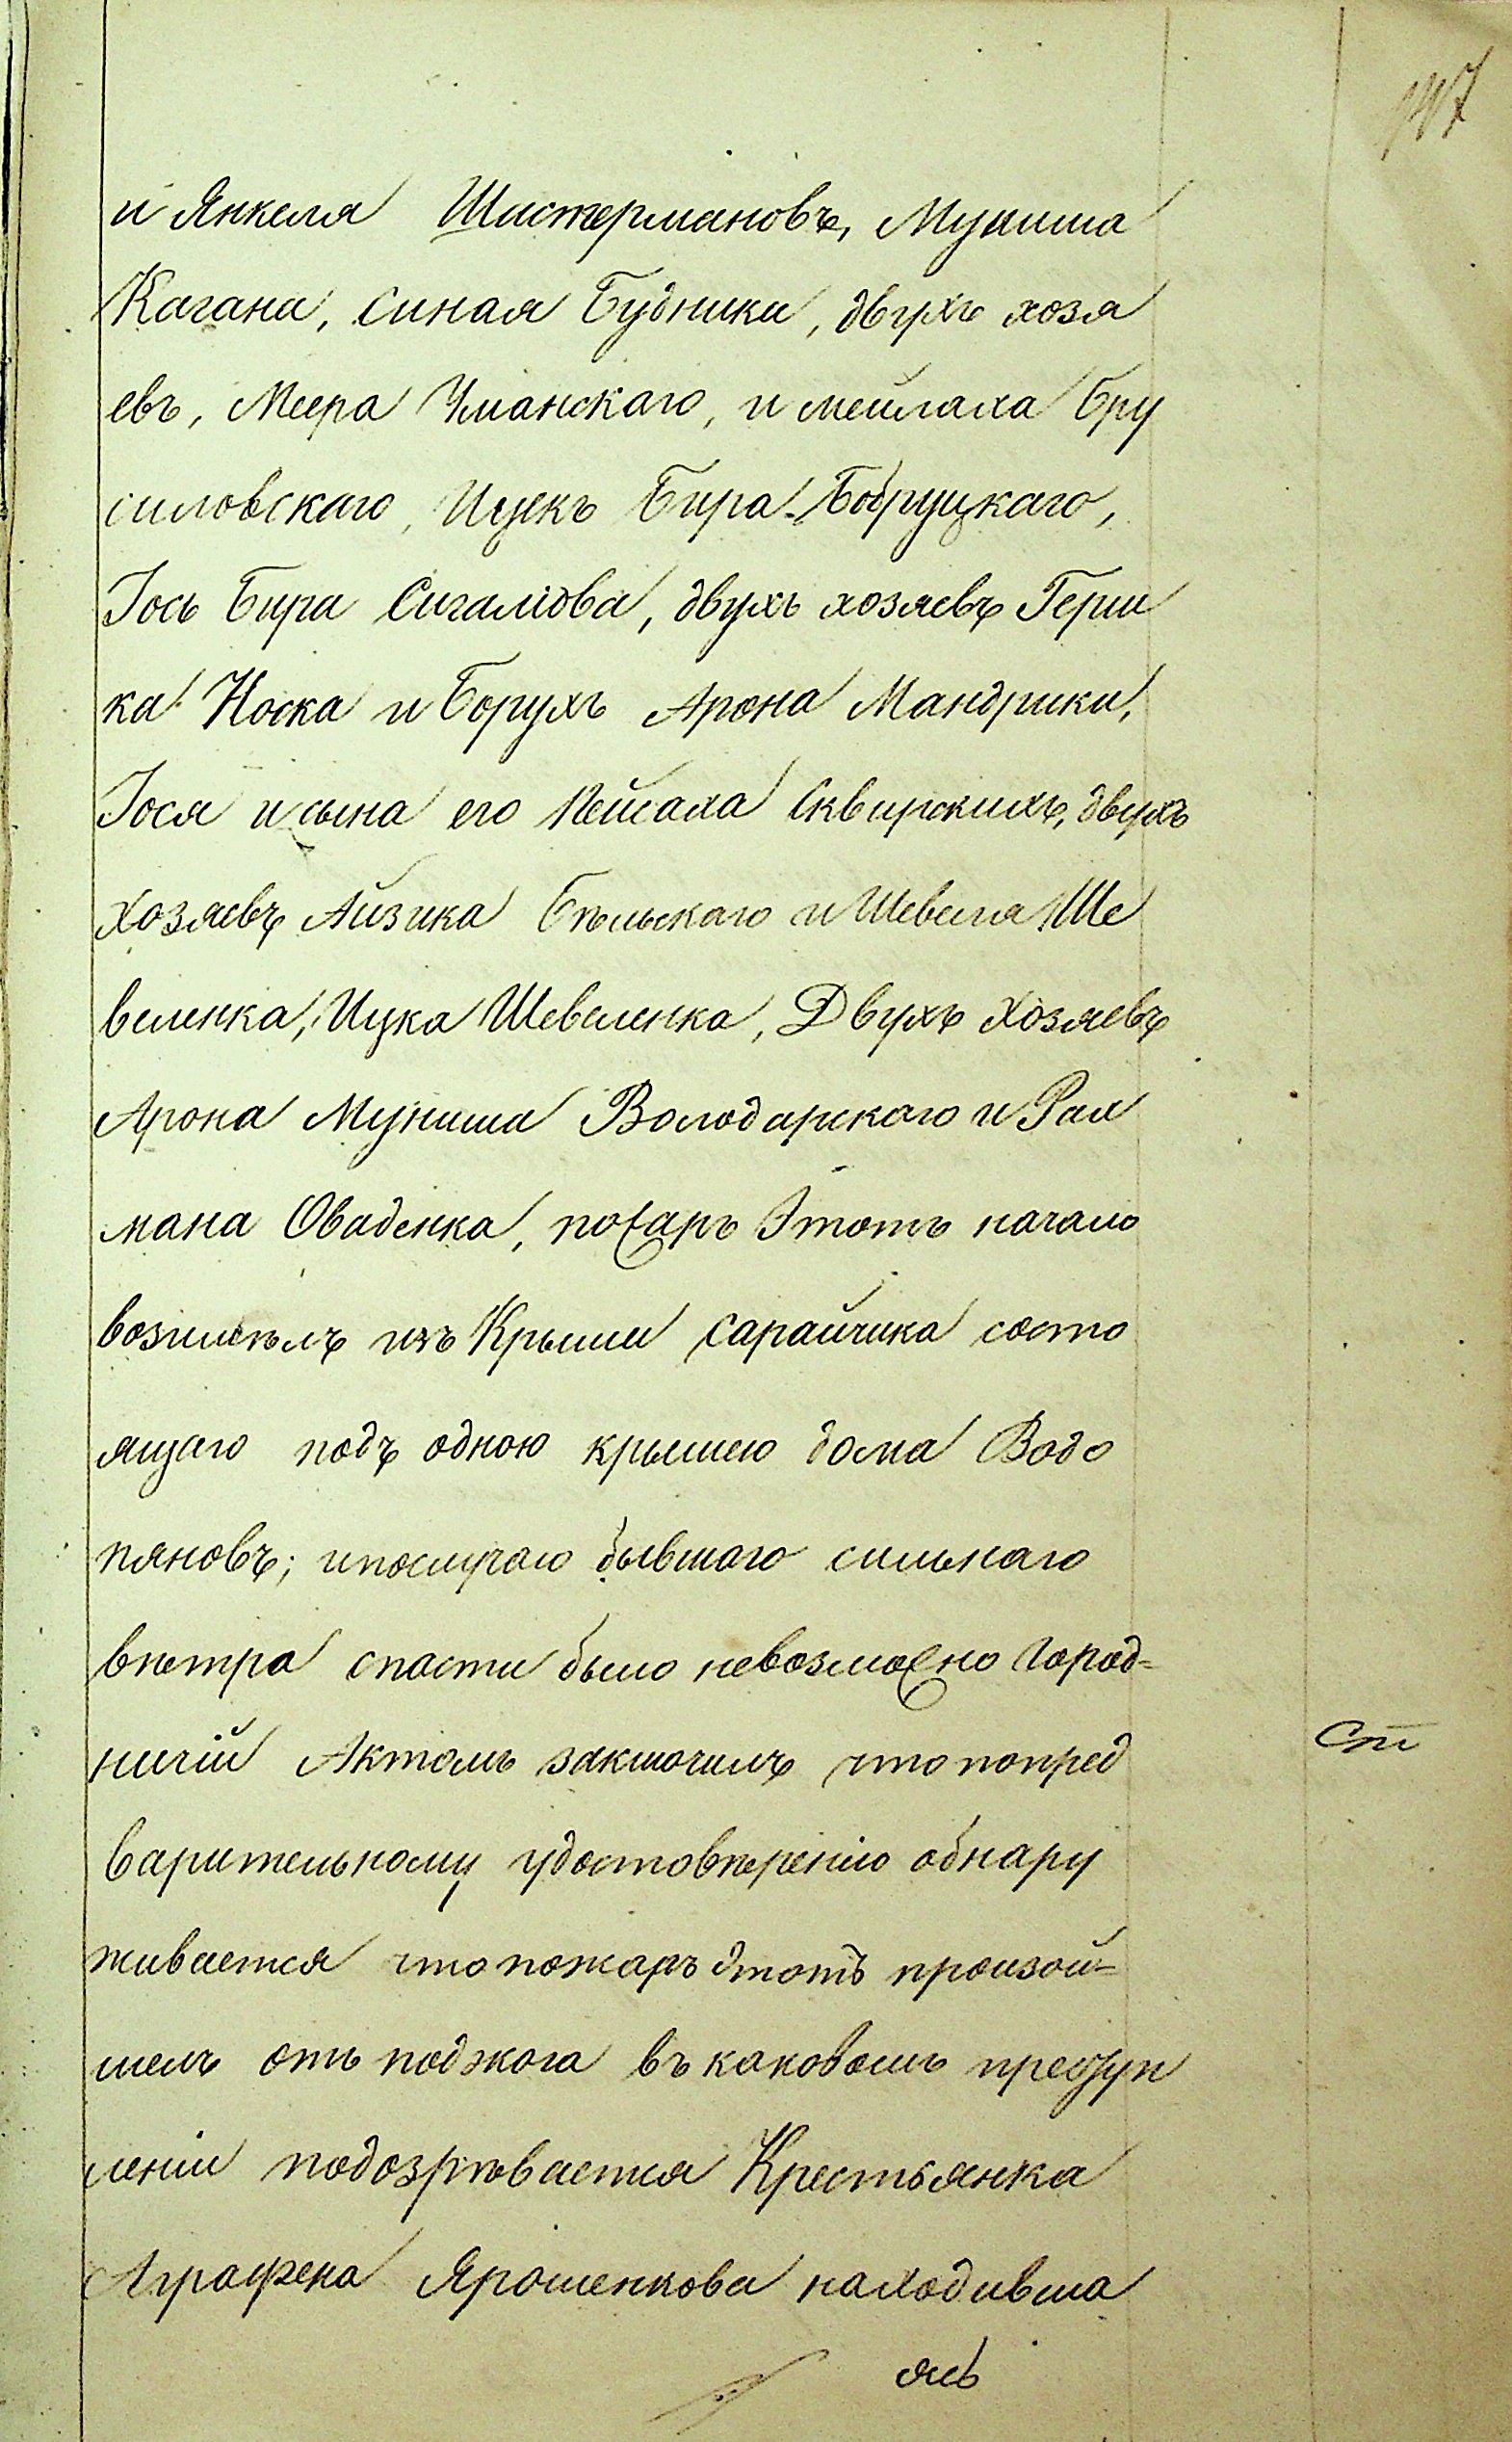 147
и Янкеля Шистермановъ, Муниша
Кагана, Синая Будника, двухъ хозя
евъ, Меера Уманскаго, и мейлаха Бру
силовскаго, Ицекъ Бира Бобруцкаго,
Іось Бира Сигалова, двухъ хозяевъ Герш
ка Носка и Борухъ Арона Мандрики,
Іося и сына его Пейсаха Сквирскихъ, двухъ
хозяевъ Айзика Бѣльскаго и Шевеля Ше
веленка, Ицка Шевеленка, Двухъ Хозяевъ
Арона Муниша Володарскаго и Рах
мана Оваденка, пожаръ Этотъ начало
возимѣлъ изъ Крыши сарайчика состо
ящаго подъ одною крышею дома Водо
пяновъ; и послучаю бывшаго сильнаго
вѣтра спасти было невозможно Город=
ничій Актомъ заключилъ что попред
варительному удостовѣренію обнару
живается что пожаръ Этотъ произой=
шелъ отъ поджога въ каковомъ преступ
леніи подозрѣвается Крестьянка
Аграфена Ярошенкова находивша
ясь
Ст